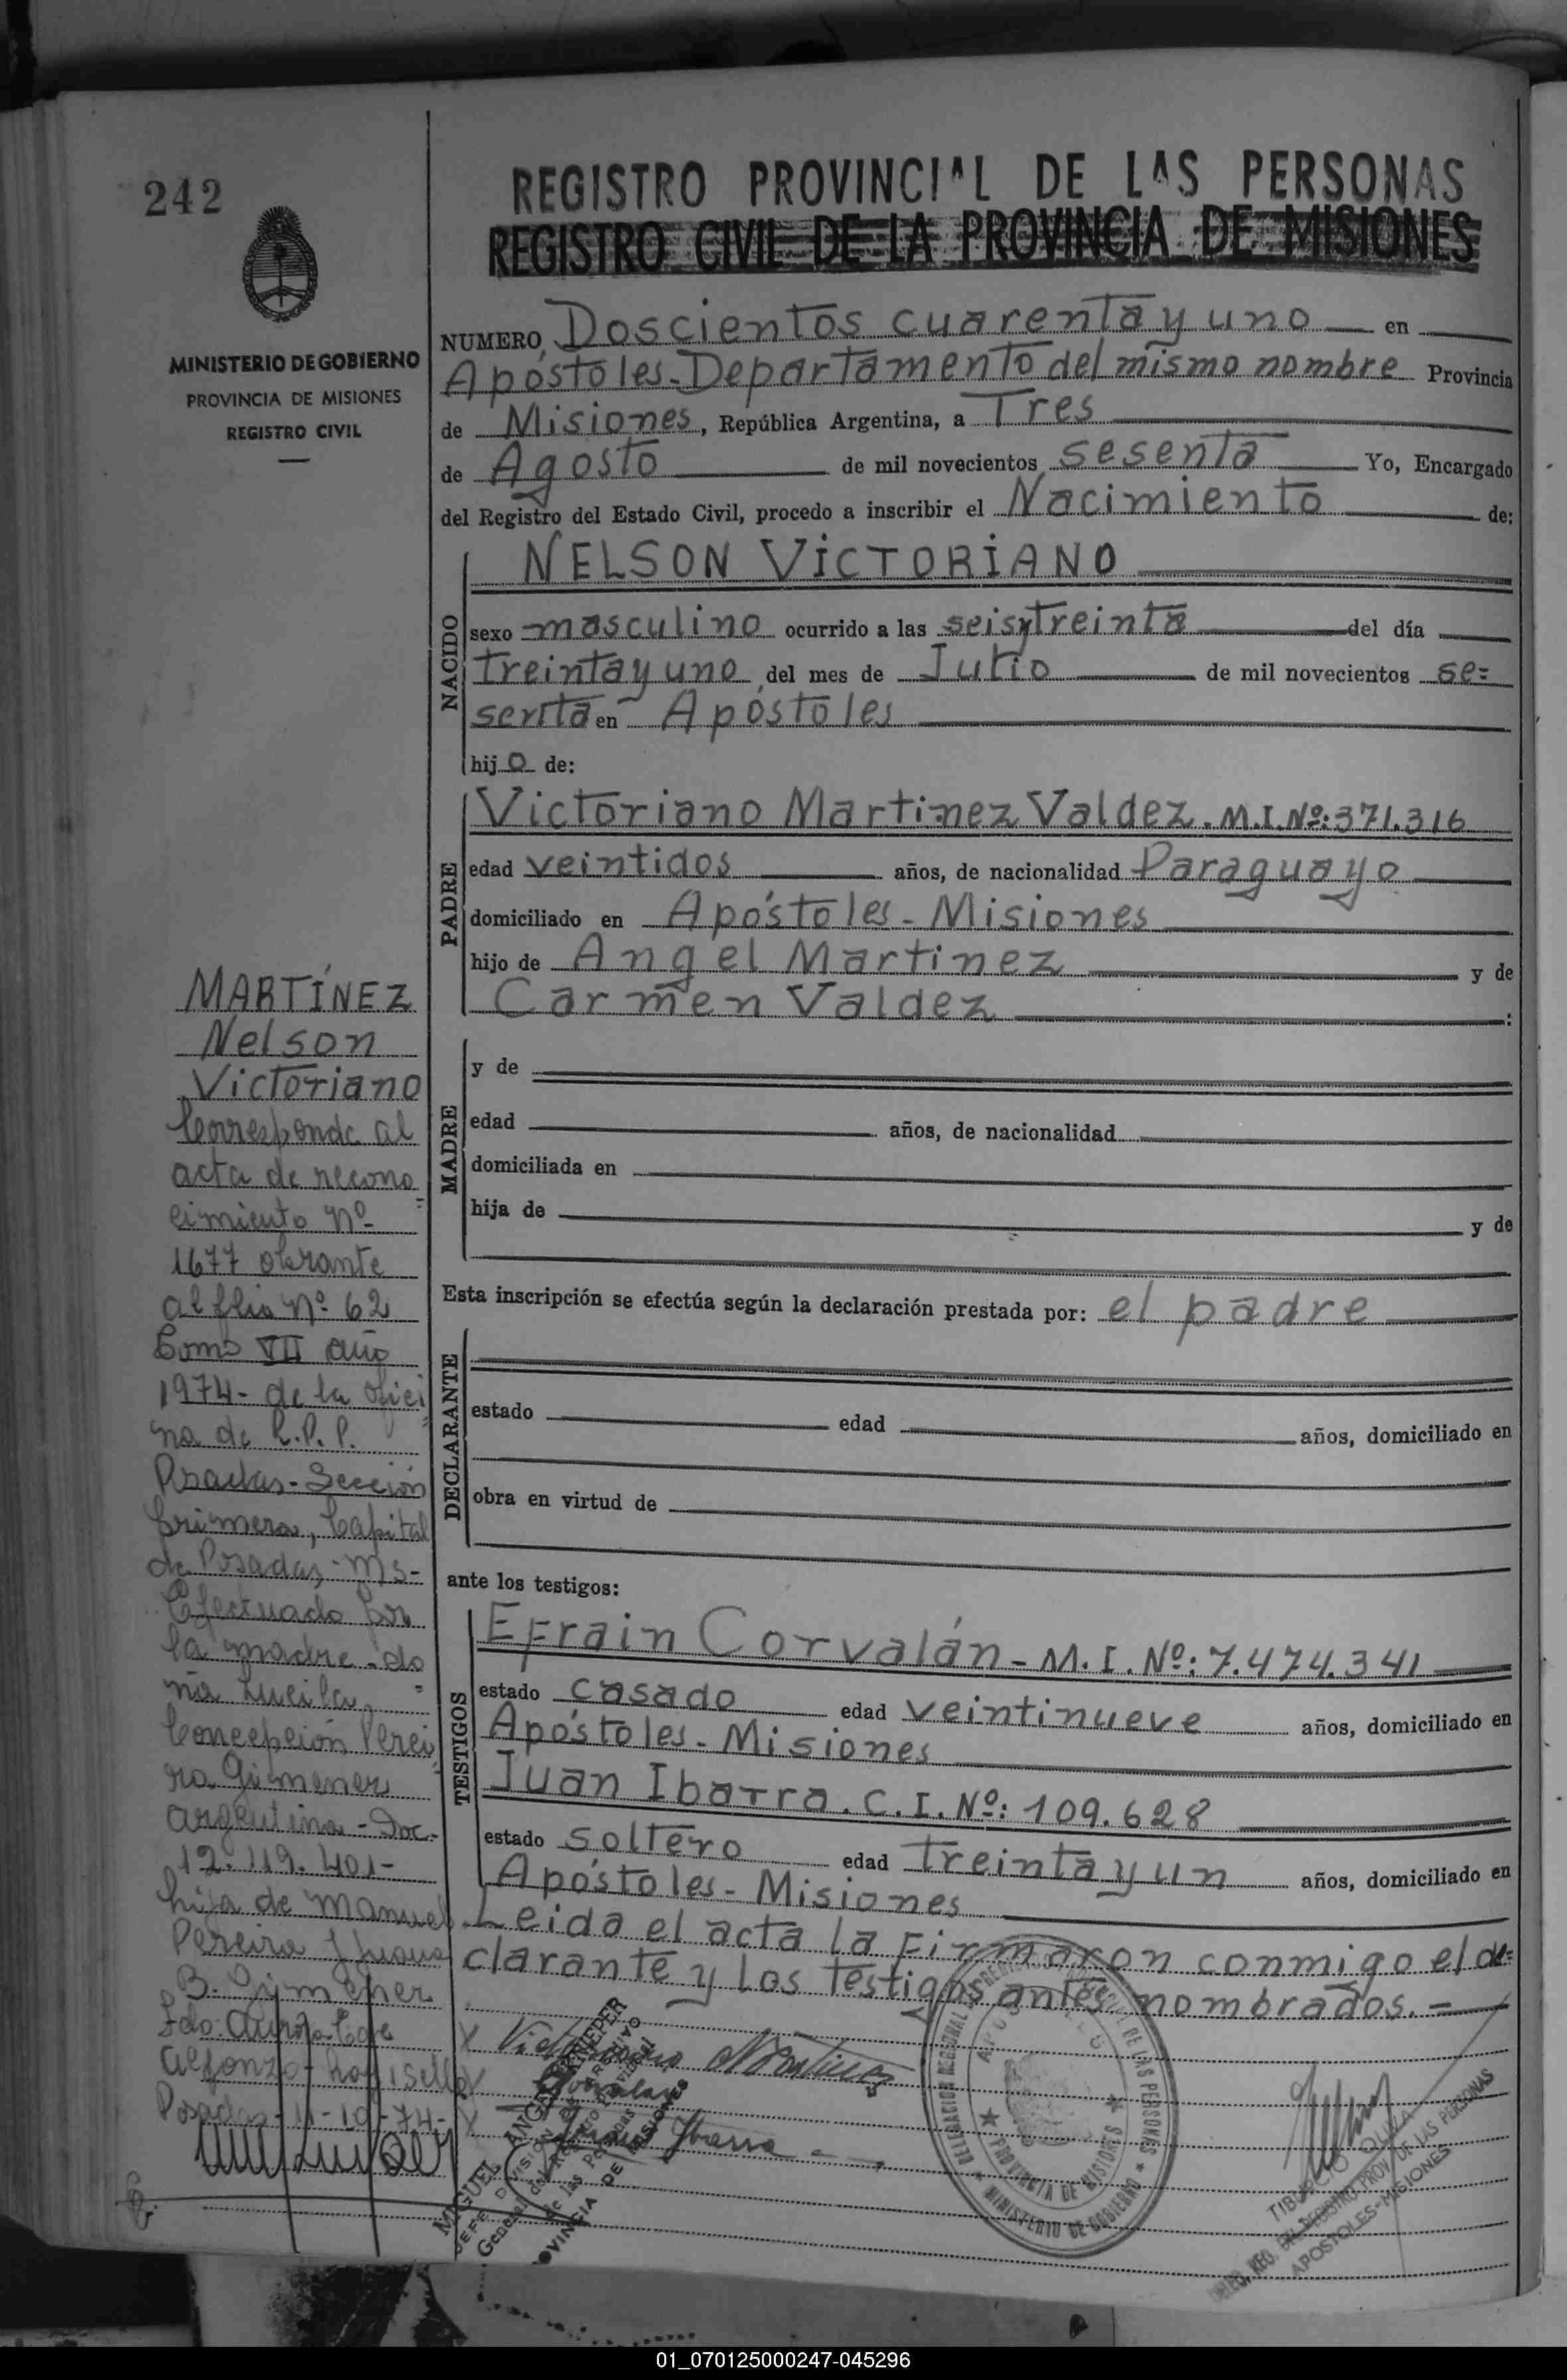 242
REGISTRO PROVINCIAL DE LAS PERSONAS
REGISTRO CIVIL DE LA PROVINCIA DE MISIONES
MINISTERIO DE GOBIERNO
PROVINCIA DE MISIONES
REGISTRO CIVIL
NUMERO Doscientos cuarenta y uno en
Apóstoles-Departamento del mismo nombre Provincia
de Misiones, República Argentina, a Tres
de Agosto de mil novecientos sesenta Yo, Encargado
del Registro del Estado Civil, procedo a inscribir el Nacimiento de:
NACIDO
NELSON VICTORIANO
sexo masculino ocurrido a las seis y treinta del día
treinta y uno del mes de Julio de mil novecientos se=
senta en Apóstoles
hijo de:
PADRE
Victoriano Martinez Valdez. M.I.Nº:371.316
edad veintidos años, de nacionalidad Paraguayo
domiciliado en Apóstoles-Misiones
hijo de Angel Martinez y de
Carmen Valdez :
MADRE
y de
edad años, de nacionalidad
domiciliada en
hija de y de
Esta inscripción se efectúa según la declaración prestada por: el padre
DECLARANTE
estado edad años, domiciliado en
obra en virtud de
ante los testigos:
TESTIGOS
Efrain Corvalán-M.I.Nº:7.474.341
estado casado edad veintinueve años, domiciliado en
Apóstoles-Misiones
Juan Ibarra. C.I.Nº: 109.628
estado soltero edad treinta y un años, domiciliado en
Apóstoles-Misiones
Leida el acta la firmaron conmigo el de=
clarante y los testigos antes nombrados.-
MARTÍNEZ
Nelson
Victoriano
Corresponde al
acta de recono=
cimiento Nº
1677 obrante
al flio Nº 62
Tomo VII año
1974- de la ofici=
na de R.P.P.
Posadas-Sección
Primera, Capital
de Posadas-Ms-
Efectuado por
la madre do=
ña Lucila
Concepción Perei=
ra Gimenez
argentina-Doc.
12.119.401-
hija de Manuel
Pereira y Juana
B. Gimenez
Fdo:
Alfonzo-
Posadas-11-10-74-
Victoriano Martinez
Corvalan
Juan Ibarra
MIGUEL ANGEL
JEFE DIVISION
General del Registro Provincial
de las Personas
PROVINCIA DE MISIONES
DELEGACION REGIONAL DE LAS PERSONAS
APOSTOLES
PROVINCIA DE MISIONES
MINISTERIO DE GOBIERNO
TIBURCIO
REG. DEL REGISTRO PROV. DE LAS PERSONAS
APOSTOLES-MISIONES
01_070125000247-045296